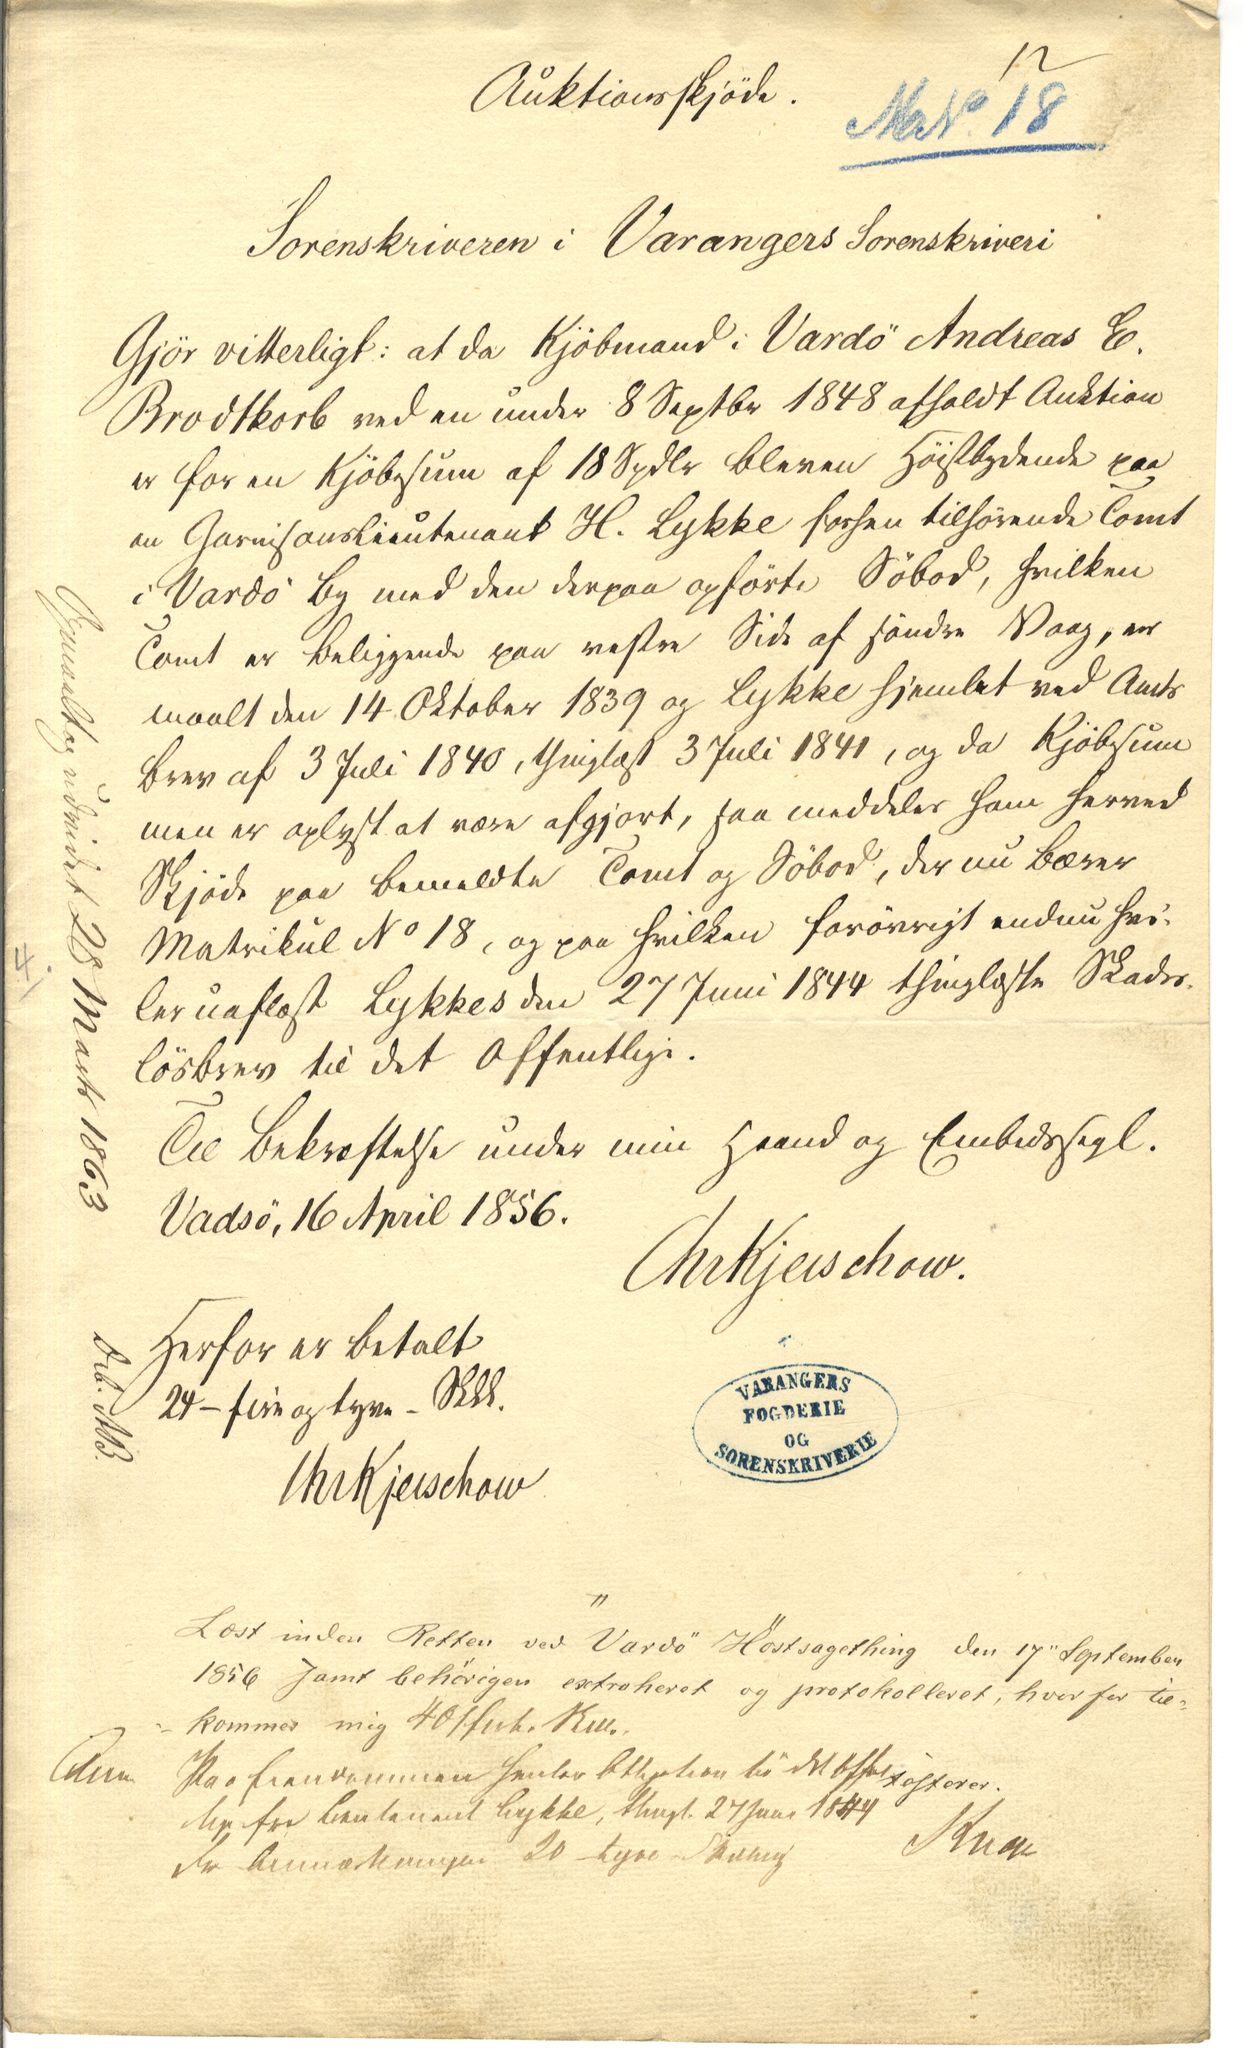 12
Auktionsskjöde.
MaNo. 18
Sorenskriveren i Varangers Sorenskriveri
Gjör vitterligt: at da Kjöbmand i Vardö Andreas E.
Brodtkorb ved en under 8 Septbr 1848 afholdt Auktion
er for en Kjöbesum af 18 Spdlr bleven Höistbydende paa
en Garnisonslieutenant H. Lykke forhen tilhörende Tomt
i Vardö By med den derpaa opförte Söbod, hvilken
Tomt er beliggende paa vestre Side af söndre Vaag, er
maalt den 14 Oktober 1839 og Lykke hjemlet ved Amts
brev af 3 Juli 1840, thinglæst 3 Juli 1841, og da Kjöbesum
men er oplyst at være afgjort, saa meddeles ham herved
Skjöde paa bemeldte Tomt og Söbod, der nu bærer
Matrikul No 18, og paa hvilken forövrigt endnu hvi-
ler uaflæst Lykkes den 27 Juni 1844 thinglæste Skades-
lösbrev til det Offentlige.
Til Bekræftelse under min Haand og Embedssegl.
Vadsö, 16 April 1856.
Chr Kjerschow.
Herfor er betalt
24 – fire og tyve – Skill.
Chr Kjerschow
VARANGERS
FOGDERIE
OG
SORENSKRIVERIE
Læst inden Retten ved Vardö Höstsagething den 17" September
1856 samt behörigen extraheret og protokolleret, hvorfor til-
kommer mig 40 förti Skill.
Anm. Paa Eiendommen hefter Obligation til det Offent
lige fra Lieutenant Lykke, thingl. 27 Juni 1844
For Anmærkningen 20 tyve Skilling
28 Marts 1863
4./